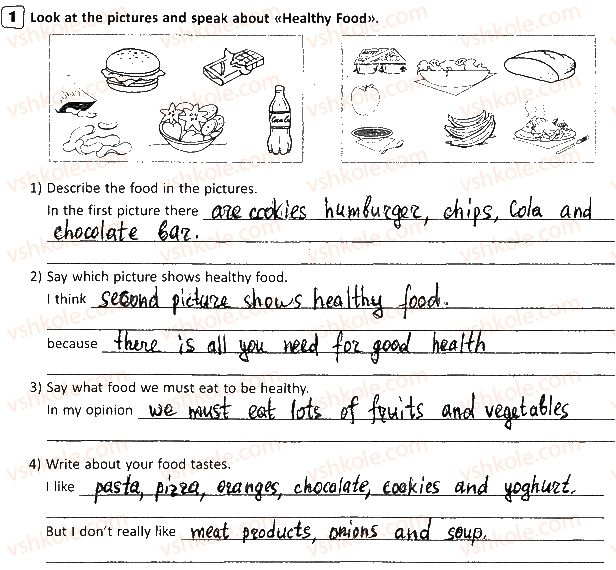 1 Look at the pictures and speak about «Healthy Food».
Coca Cola
1) Describe the food in the pictures.
In the first picture there are cookies humburger, chips, Cola and
chocolate bar.
2) Say which picture shows healthy food.
I think second picture shows healthy food.
because there is all you need for good health
3) Say what food we must eat to be healthy.
In my opinion we must eat lots of fruits and vegetables
4) Write about your food tastes.
I like pasta, pizza, oranges, chocolate, cookies and yoghurt.
But I don't really like meat products, onions and soup.
vshkole.com